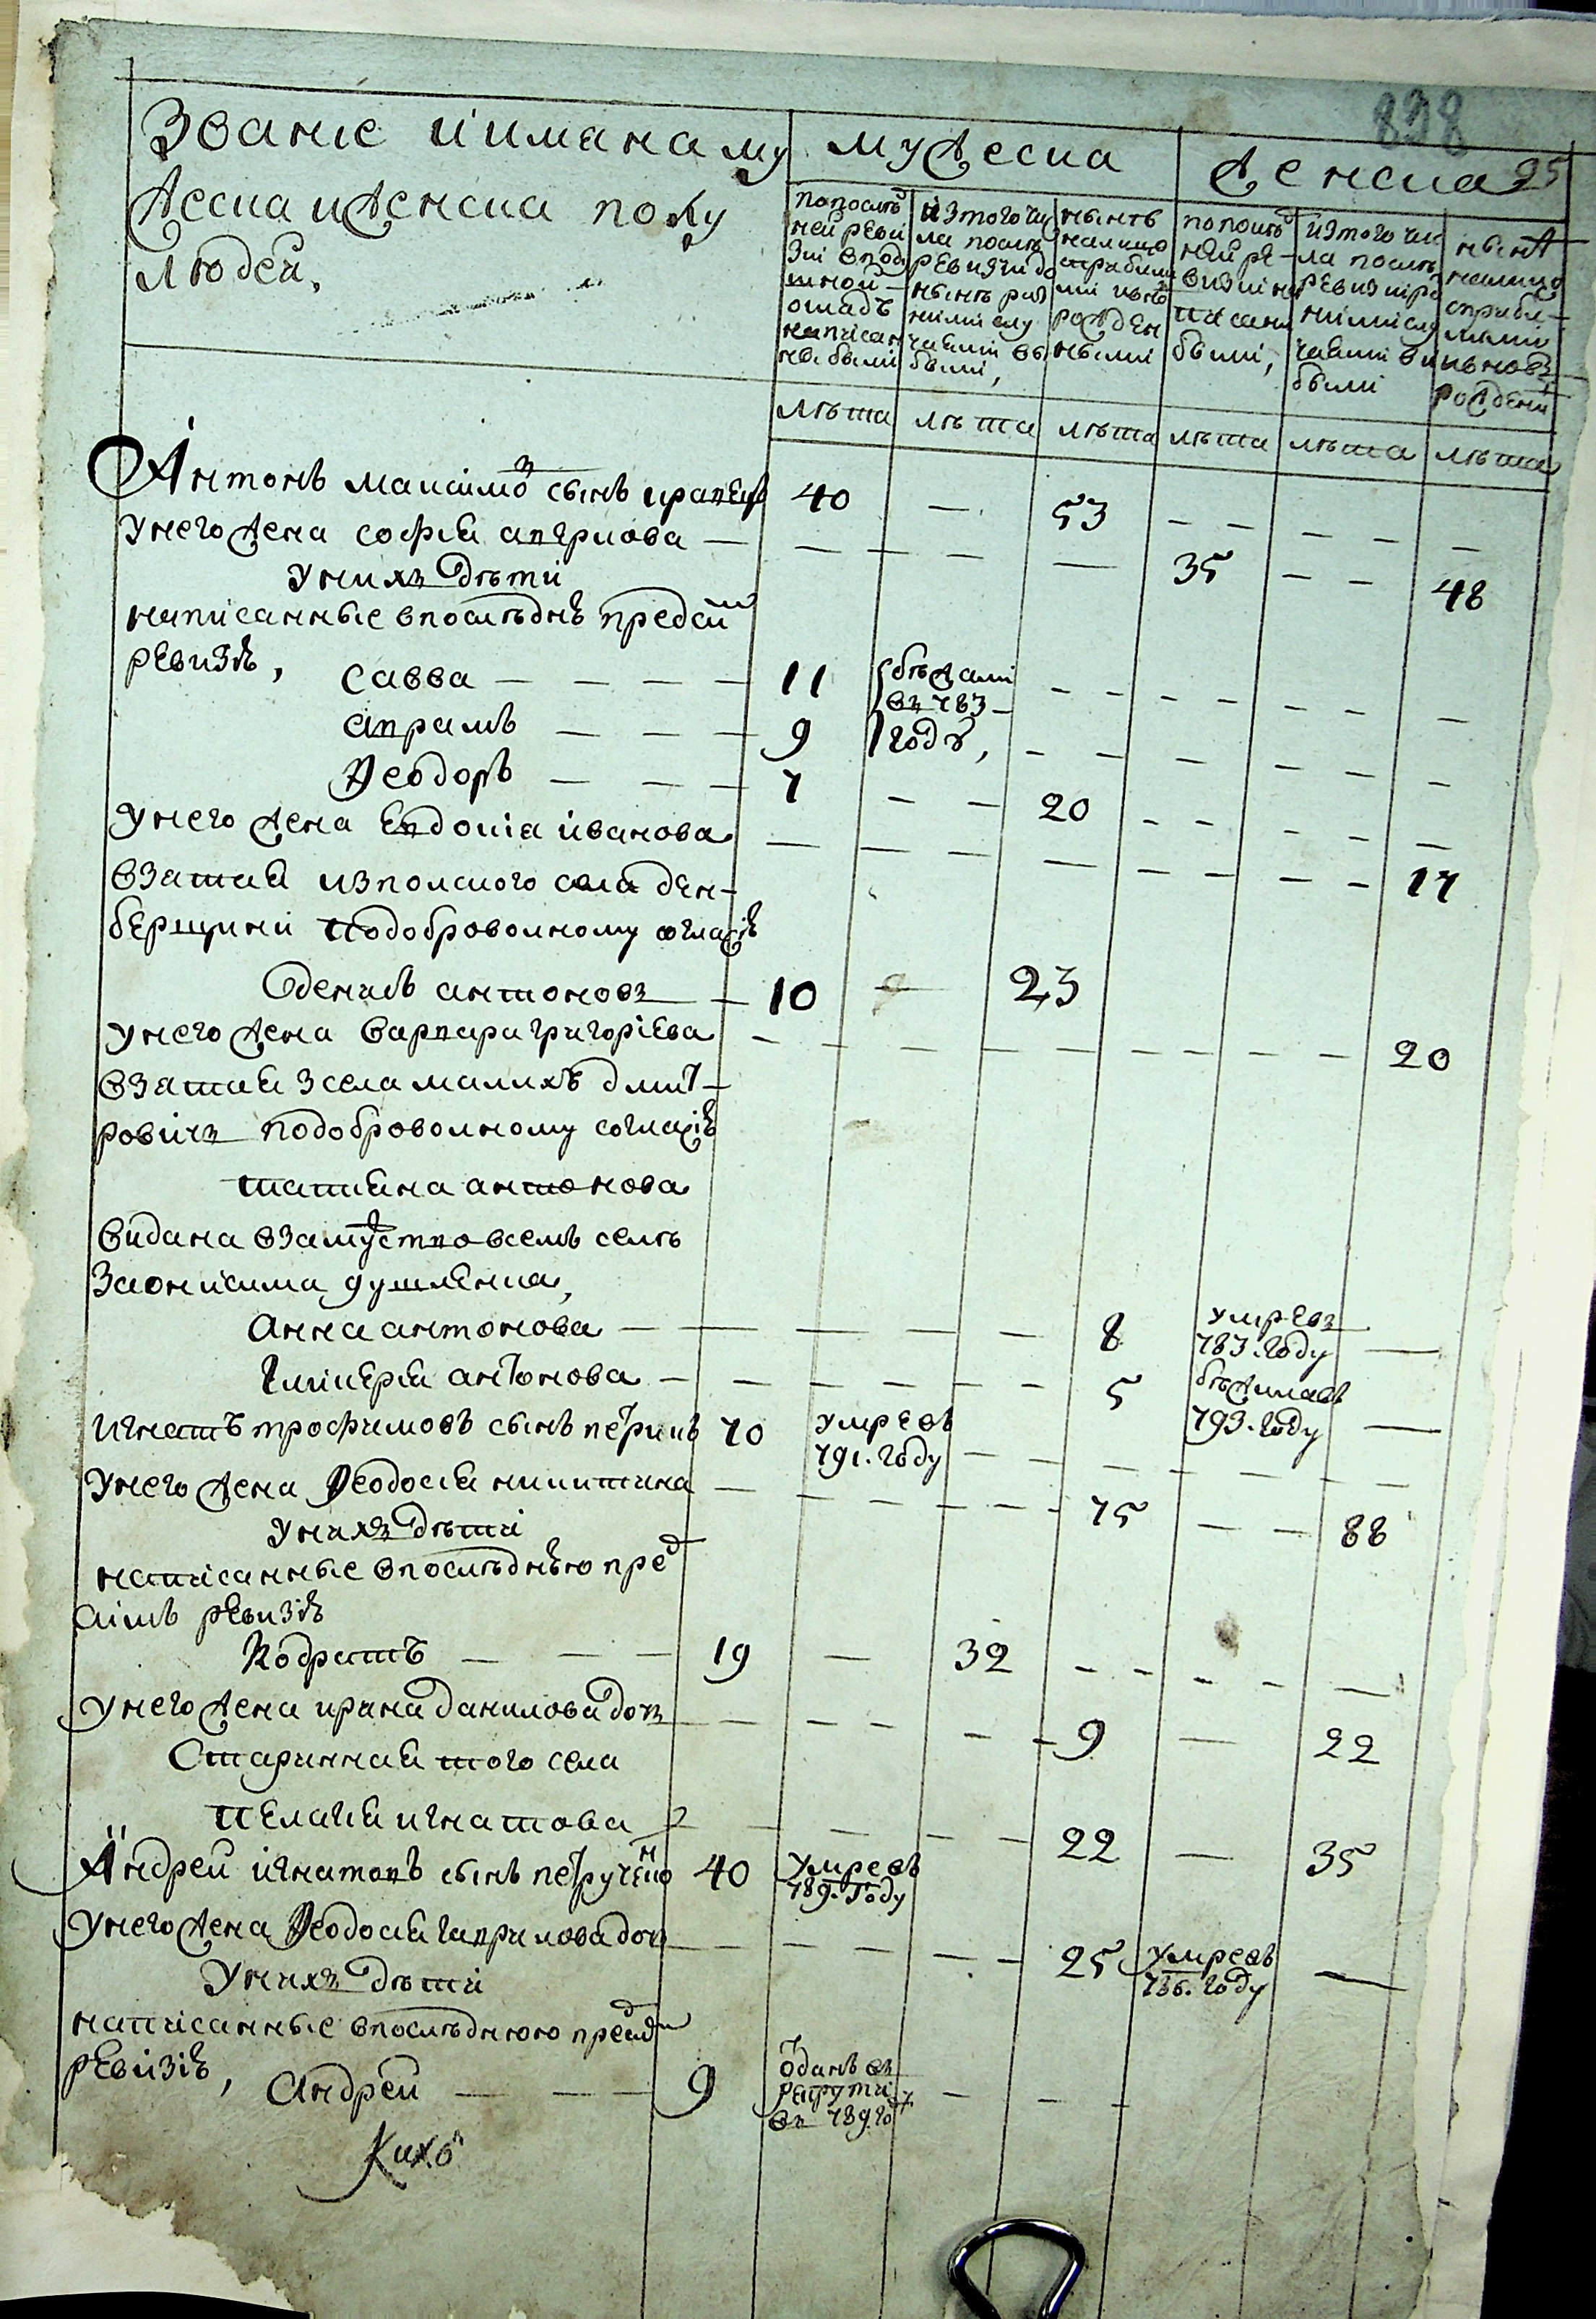 898
25
Званіе и имяна му
жеска и женска полу
людей,
мужеска
женска
попослѣд
ней реви
зіи вподу
шной
окладъ
написан
ны были
изтого чи
ла послѣ
ревизіи до
нынѣ раз
ними слу
чаями вы
были,
нынѣ
налицо
сприбыли
ми и внов
рожден
ными
попослѣд
ней ре-
визіи на
писани
были,
изтого чис
ла послѣ
ревизіи ра
ними слу
чаями вы
были
нынѣ
налицо
сприбы-
лыми
ивновъ
рожденн
лѣта лѣта лѣта лѣта лѣта лѣта
Антонъ максимовъ сынъ 40 — 53 — — — — —
Унего жена софія — — — — — 35 — — 48
Унихъ дѣти
написанные впослѣднѣ предъ
ревизіѣ, савва — — — 11 бѣжали — — — — — — —
въ 783
апрамъ — — — 9 году, — — — — — — —
Ѳеодоръ — — — 7 — — 20 — — — — —
Унего жена Евдокія иванова — — — — — — — — 17
взятая изполского села ден-
берщини подоброволному согласіѣ
Денисъ антоновъ — 10 — 23
Унего жена варвара григоріева — — — — — — — — — 20
взятая зсела малихъ дмит-
ровичъ подоброволному согласіѣ
татияна антонова
видана взамужство всемъ селѣ
заонисима душленка,
Анна антонова — — — — — 8 умре въ —
783. году
Гликерія антонова — — — — — — 5 бѣжала въ
793. году —
Игнатъ трофимовъ сынъ 70 умре въ — — — — — —
791. году
Унего жена Ѳеодосія никитина — — — — — 75 — — 88
Унихъ дѣти
написанные впослѣднѣю пред
ревизіѣ
Кодратъ — — — 19 — 32 — — — — —
Унего жена ирина данилова дочъ — — — — — 9 — 22
Старинная того села
Пелагія игнатова — — — — 22 — 35
Андрей игнатовъ сынъ 40 умре въ
789. году
Унего жена Ѳеодосія гаврилова дочъ — — — — 25 умре въ —
786. году
Унихъ дѣти
написанные впослѣднюю предъ
ревізіѣ, Андрей — — — 9 оданъ въ — — —
рекрути
въ 789 го